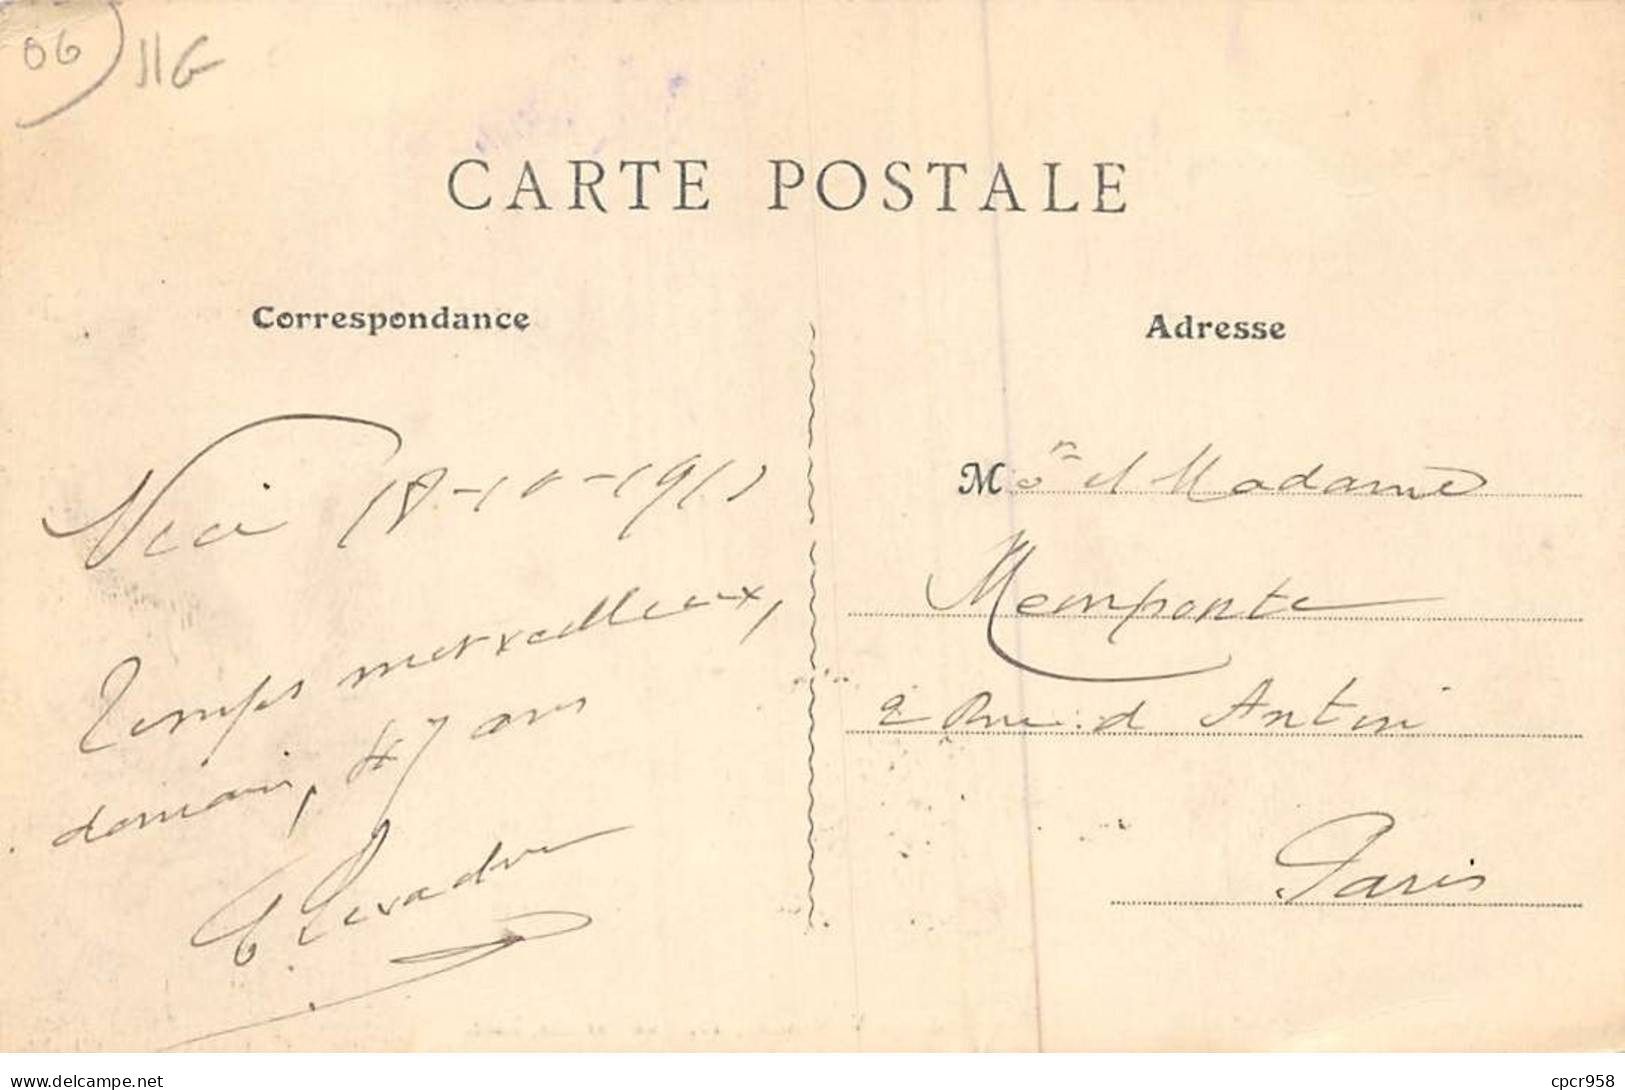 06 JJG
CARTE POSTALE
Correspondance
Adresse
Nice 18-10-1911
Temps merveilleux,
demain, 47 ans
Mor et Madame
Memponte
2 Rue d Antin
Paris
delcampe.net
cpcr958